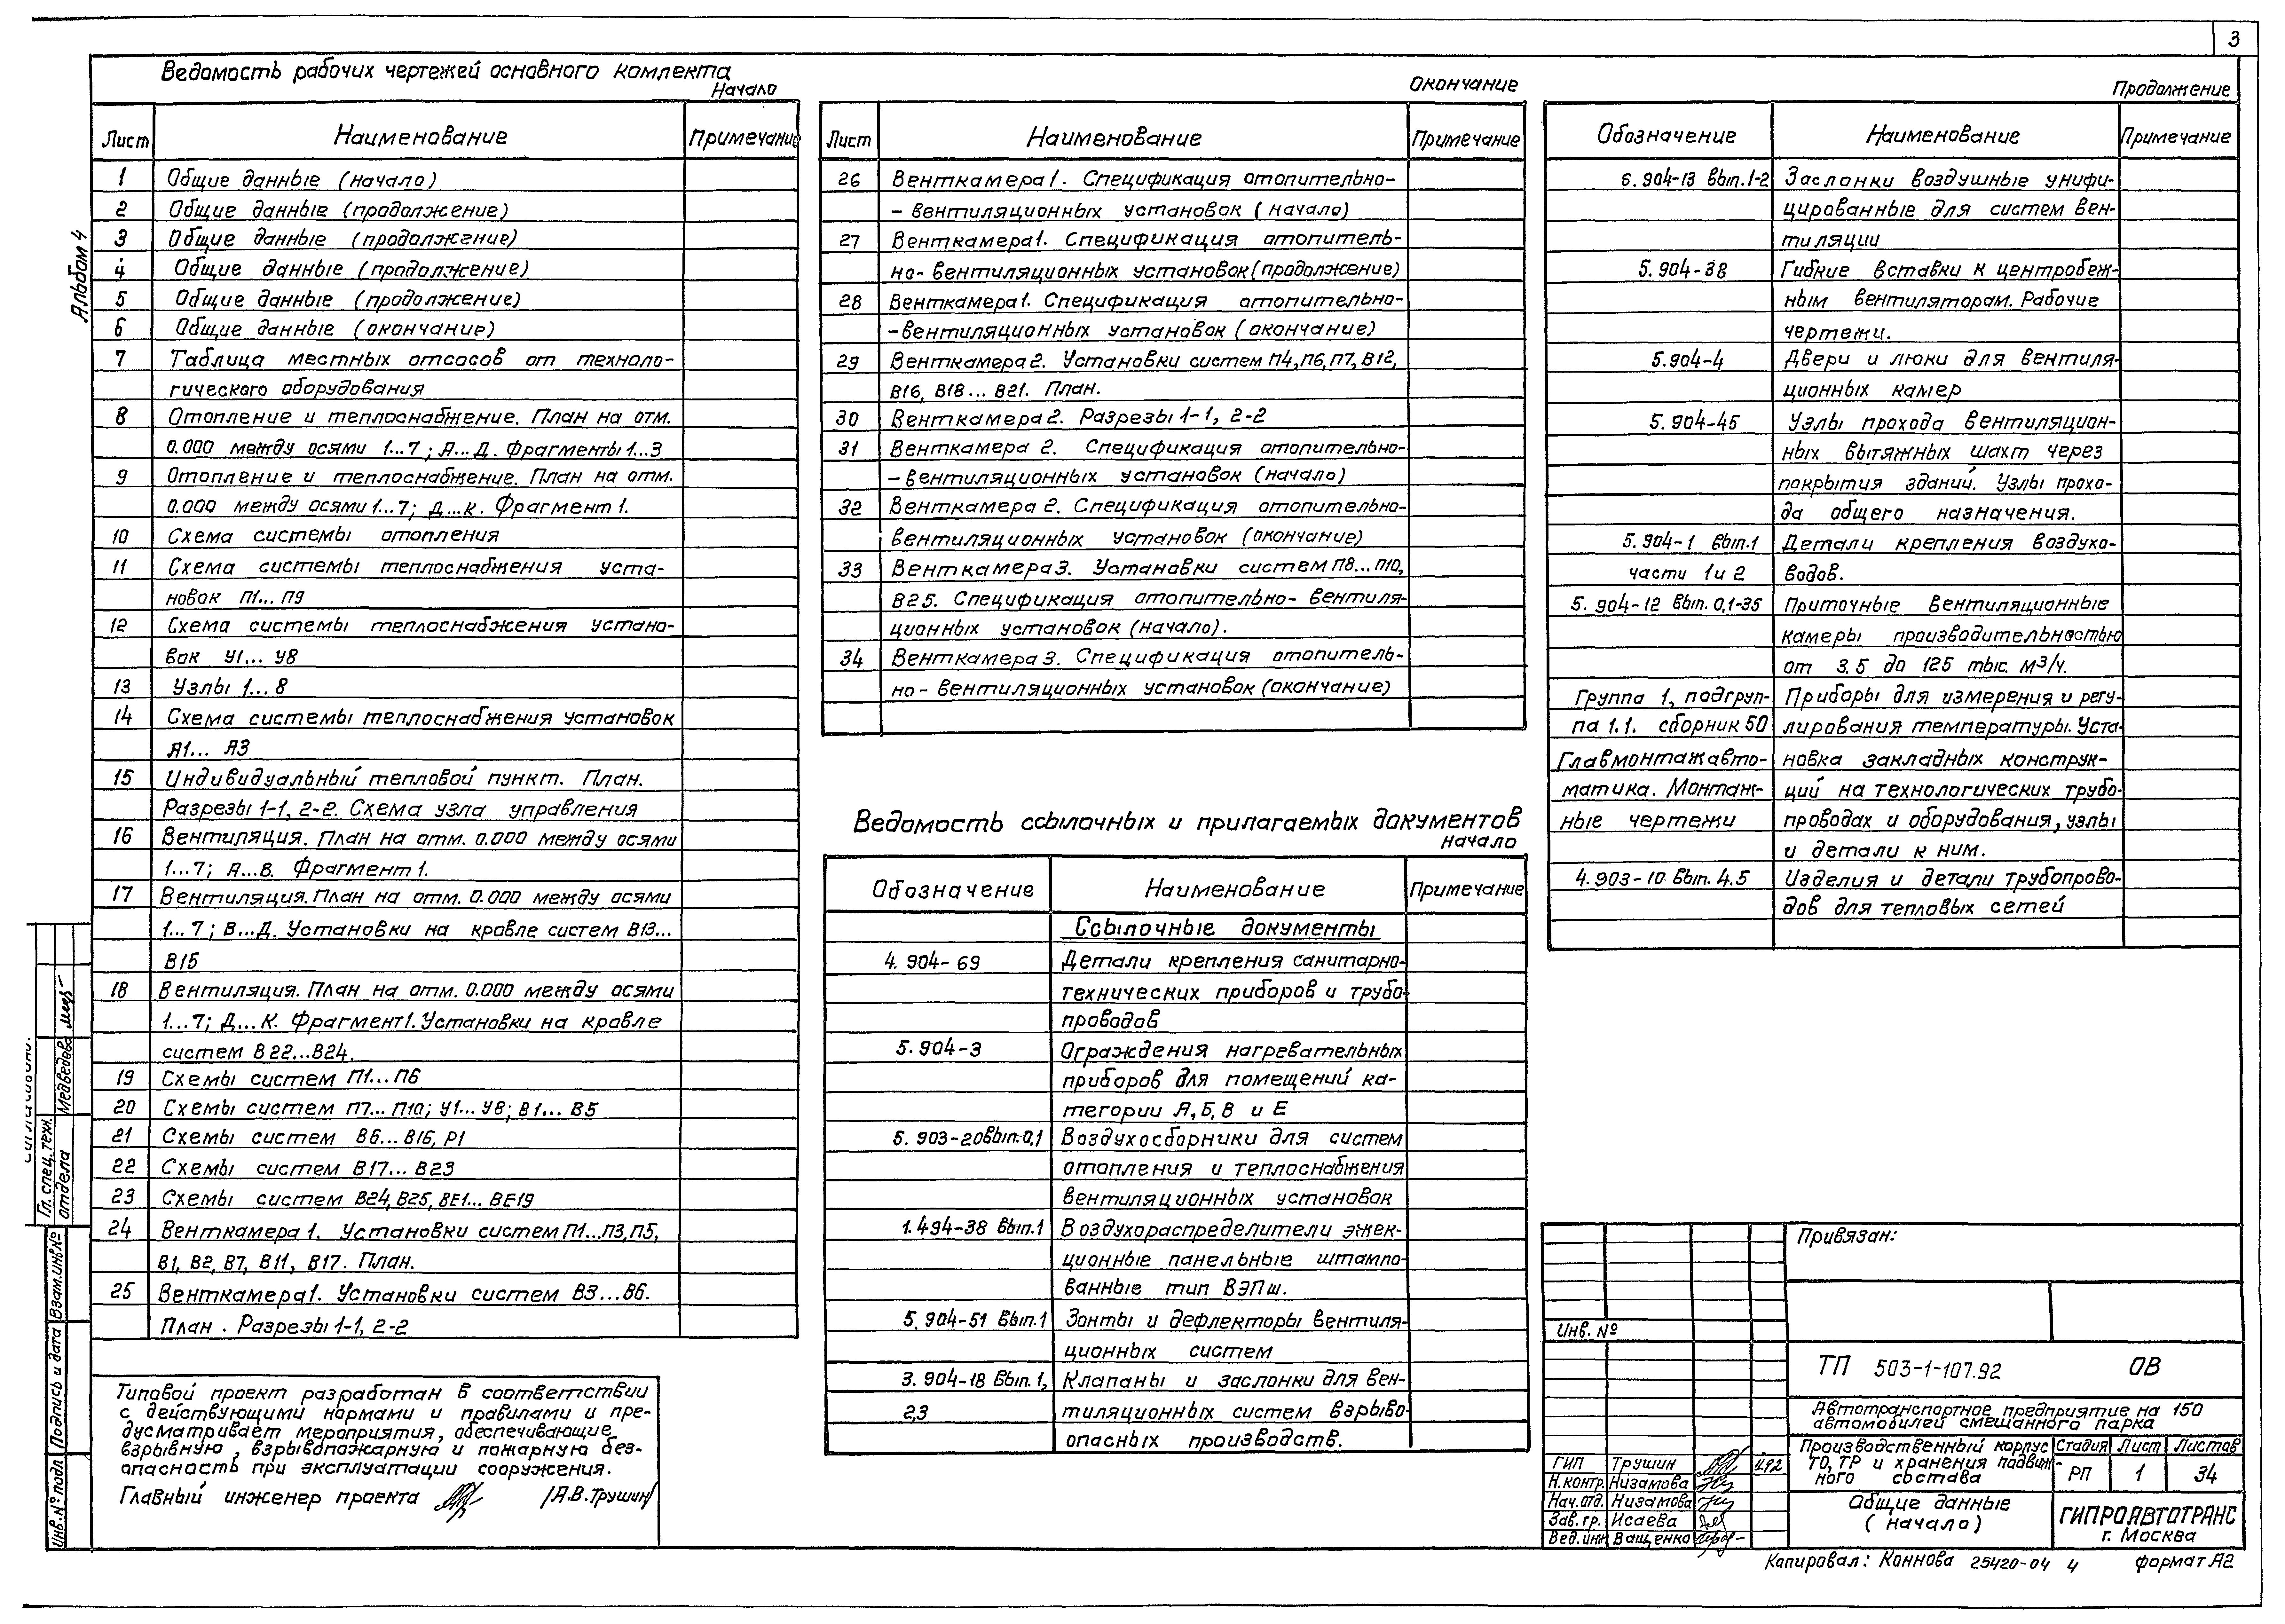 3
Ведомость рабочих чертежей основного комлекта
Начало
Лист Наименование Примечание
1 Общие данные (начало)
2 Общие данные (продолжение)
3 Общие данные (продолжение)
4 Общие данные (продолжение)
5 Общие данные (продолжение)
6 Общие данные (окончание)
7 Таблица местных отсосов от техноло-
гического оборудования
8 Отопление и теплоснабжение. План на отм.
0.000 между осями 1...7; А...Д. Фрагменты 1...3
9 Отопление и теплоснабжение. План на отм.
0.000 между осями 1...7; Д...К. Фрагмент 1.
10 Схема системы отопления
11 Схема системы теплоснабжения уста-
новок П1... П9
12 Схема системы теплоснабжения устано-
вок У1... У8
13 Узлы 1...8
14 Схема системы теплоснабжения установок
А1... А3
15 Индивидуальный тепловой пункт. План.
Разрезы 1-1, 2-2. Схема узла управления
16 Вентиляция. План на отм. 0.000 между осями
1...7; А...В. Фрагмент 1.
17 Вентиляция. План на отм. 0.000 между осями
1...7; В...Д. Установки на кровле систем В13...
В15
18 Вентиляция. План на отм. 0.000 между осями
1...7; Д...К. Фрагмент 1. Установки на кровле
систем В22...В24.
19 Схемы систем П1...П6
20 Схемы систем П7... П10; У1... У8; В1... В5
21 Схемы систем В6... В16, Р1
22 Схемы систем В17... В23
23 Схемы систем В24, В25, ВЕ1... ВЕ19
24 Венткамера 1. Установки систем П1...П3, П5,
В1, В2, В7, В11, В17. План.
25 Венткамера 1. Установки систем В3...В6.
План. Разрезы 1-1, 2-2
Окончание
Лист Наименование Примечание
26 Венткамера 1. Спецификация отопительно-
- вентиляционных установок (начало)
27 Венткамера 1. Спецификация отопитель-
но-вентиляционных установок (продолжение)
28 Венткамера 1. Спецификация отопительно-
-вентиляционных установок (окончание)
29 Венткамера 2. Установки систем П4, П6, П7, В12,
В16, В18... В21. План.
30 Венткамера 2. Разрезы 1-1, 2-2
31 Венткамера 2. Спецификация отопительно-
-вентиляционных установок (начало)
32 Венткамера 2. Спецификация отопительно-
вентиляционных установок (окончание)
33 Венткамера 3. Установки систем П8...П10,
В25. Спецификация отопительно-вентиля-
ционных установок (начало).
34 Венткамера 3. Спецификация отопитель-
но-вентиляционных установок (окончание)
Ведомость ссылочных и прилагаемых документов
Начало
Обозначение Наименование Примечание
Ссылочные документы
4.904-69 Детали крепления санитарно-
технических приборов и трубо-
проводов
5.904-3 Ограждения нагревательных
приборов для помещений ка-
тегории А, Б, В и Е
5.903-20 вып. 0,1 Воздухосборники для систем
отопления и теплоснабжения
вентиляционных установок
1.494-38 вып. 1 Воздухораспределители эжек-
ционные панельные штампо-
ванные тип ВЭПш.
5.904-51 вып. 1 Зонты и дефлекторы вентиля-
ционных систем
3.904-18 вып. 1, Клапаны и заслонки для вен-
2,3 тиляционных систем взрыво-
опасных производств.
Продолжение
Обозначение Наименование Примечание
6.904-13 вып. 1-2 Заслонки воздушные унифи-
цированные для систем вен-
тиляции
5.904-38 Гибкие вставки к центробеж-
ным вентиляторам. Рабочие
чертежи.
5.904-4 Двери и люки для вентиля-
ционных камер
5.904-45 Узлы прохода вентиляцион-
ных вытяжных шахт через
покрытия зданий. Узлы прохо-
да общего назначения.
5.904-1 вып. 1 Детали крепления воздухо-
части 1 и 2 водов.
5.904-12 вып. 0,1-35 Приточные вентиляционные
камеры производительностью
от 3.5 до 125 тыс. м³/ч.
Группа 1, подгруп- Приборы для измерения и регу-
па 1.1. сборник 50 лирования температуры. Уста-
Главмонтажавто- новка закладных конструк-
матика. Монтаж- ций на технологических трубо-
ные чертежи проводах и оборудования, узлы
и детали к ним.
4.903-10 вып. 4.5 Изделия и детали трубопрово-
дов для тепловых сетей
Типовой проект разработан в соответствии
с действующими нормами и правилами и пре-
дусматривает мероприятия, обеспечивающие
взрывную, взрывопожарную и пожарную без-
опасность при эксплуатации сооружения.
Главный инженер проекта /А.В. Трушин/
Альбом 4
Согласовано:
Гл. спец. техн. отдела Медведева
Взам. инв. №
Подпись и дата
Инв. № подл.
Привязан:
Инв. №
ТП 503-1-107.92 ОВ
Автотранспортное предприятие на 150
автомобилей смешанного парка
Производственный корпус
ТО, ТР и хранения подвиж-
ного состава
Стадия Лист Листов
РП 1 34
Общие данные
(начало)
ГИПРОАВТОТРАНС
г. Москва
ГИП Трушин 11.92
Н.контр. Низамова
Нач. отд. Низамова
Зав. гр. Исаева
Вед. инж. Ващенко
Копировал: Коннова 25420-04 4 формат А2